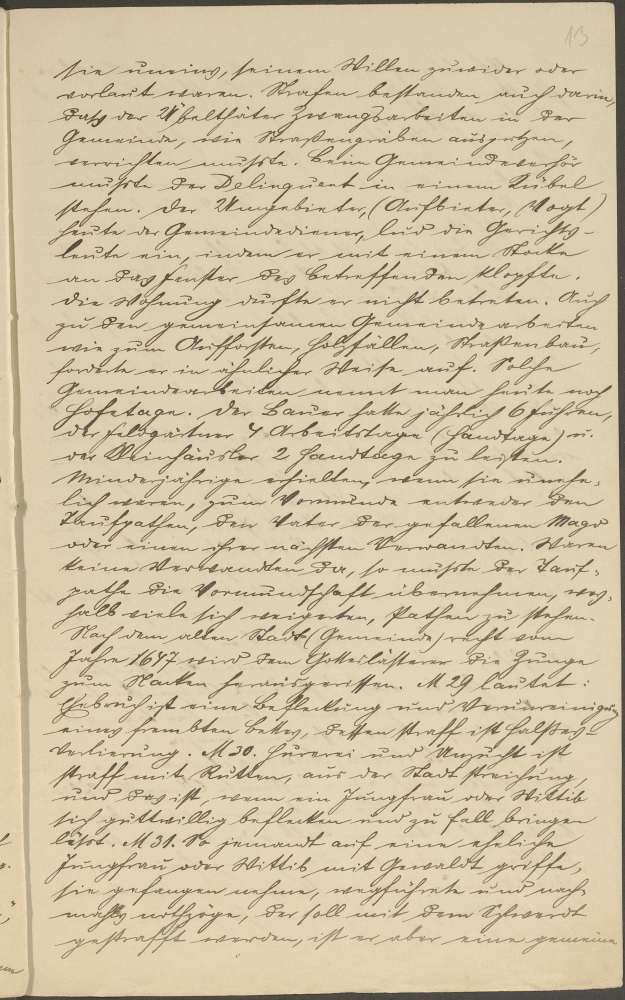 13
sie uneins, seinem Willen zuwider oder
vorlaut waren. Strafen bestanden auch darin,
daß der Übelthäter Zwangsarbeiten in der
Gemeinde, wie Straßengräben ausputzen,
verrichten mußte. Beim Gemeindeverhör
mußte der Delinquent in einem Kübel
stehen. Der Umgebieter, (Aufbieter, Vogt)
heute der Gemeindediener, lud die Gerichts-
leute ein, indem er mit einem Stocke
an das Fenster des betreffenden klopfte.
Die Wohnung durfte er nicht betreten. Auch
zu den gemeinsamen Gemeindearbeiten
wie zum Aufforsten, Holzfällen, Straßenbau,
forderte er in ähnlicher Weise auf. Solche
Gemeindearbeiten nennt man heute noch
Hofetage. Der Bauer hatte jährlich 6 Fuhren,
der Feldgärtner 4 Arbeitstage (Handtage) u.
der Kleinhäusler 2 Handtage zu leisten.
Minderjährige erhielten, wenn sie unehe-
lich waren, zum Vormunde entweder den
Taufpathen, den Vater der gefallenen Magd
oder einen ihrer nächsten Verwandten. Waren
keine Verwandten da, so mußte der Tauf-
pathe die Vormundschaft übernehmen, wes-
halb viele sich weigerten, Pathen zu stehen.
Nach dem alten Stadt (Gemeinde) recht vom
Jahre 1647 wird dem Gotteslästerer die Zunge
zum Nacken herausgerissen. M 29 lautet:
Ehebruch ist eine Befleckung und Verunreinigung
eines frembten Bettes, dessen straff ist Halßes-
Verlierung. M 30. Hurerei und Unzucht ist
straff mit Rutten, aus der Stadt streichung,
und das ist, wenn ein Jungfrau oder Wittib
sich guttwillig beflecken und zu Fall bringen
läßt. M 31. So jemandt auf eine eheliche
Jungfrau oder Wittib mit Gewaldt griffe,
sie gefangen nehme, wegführete und nach
mahls nothzöge, der soll mit dem Schwerdt
gestrafft werden, ist er aber eine gemeine